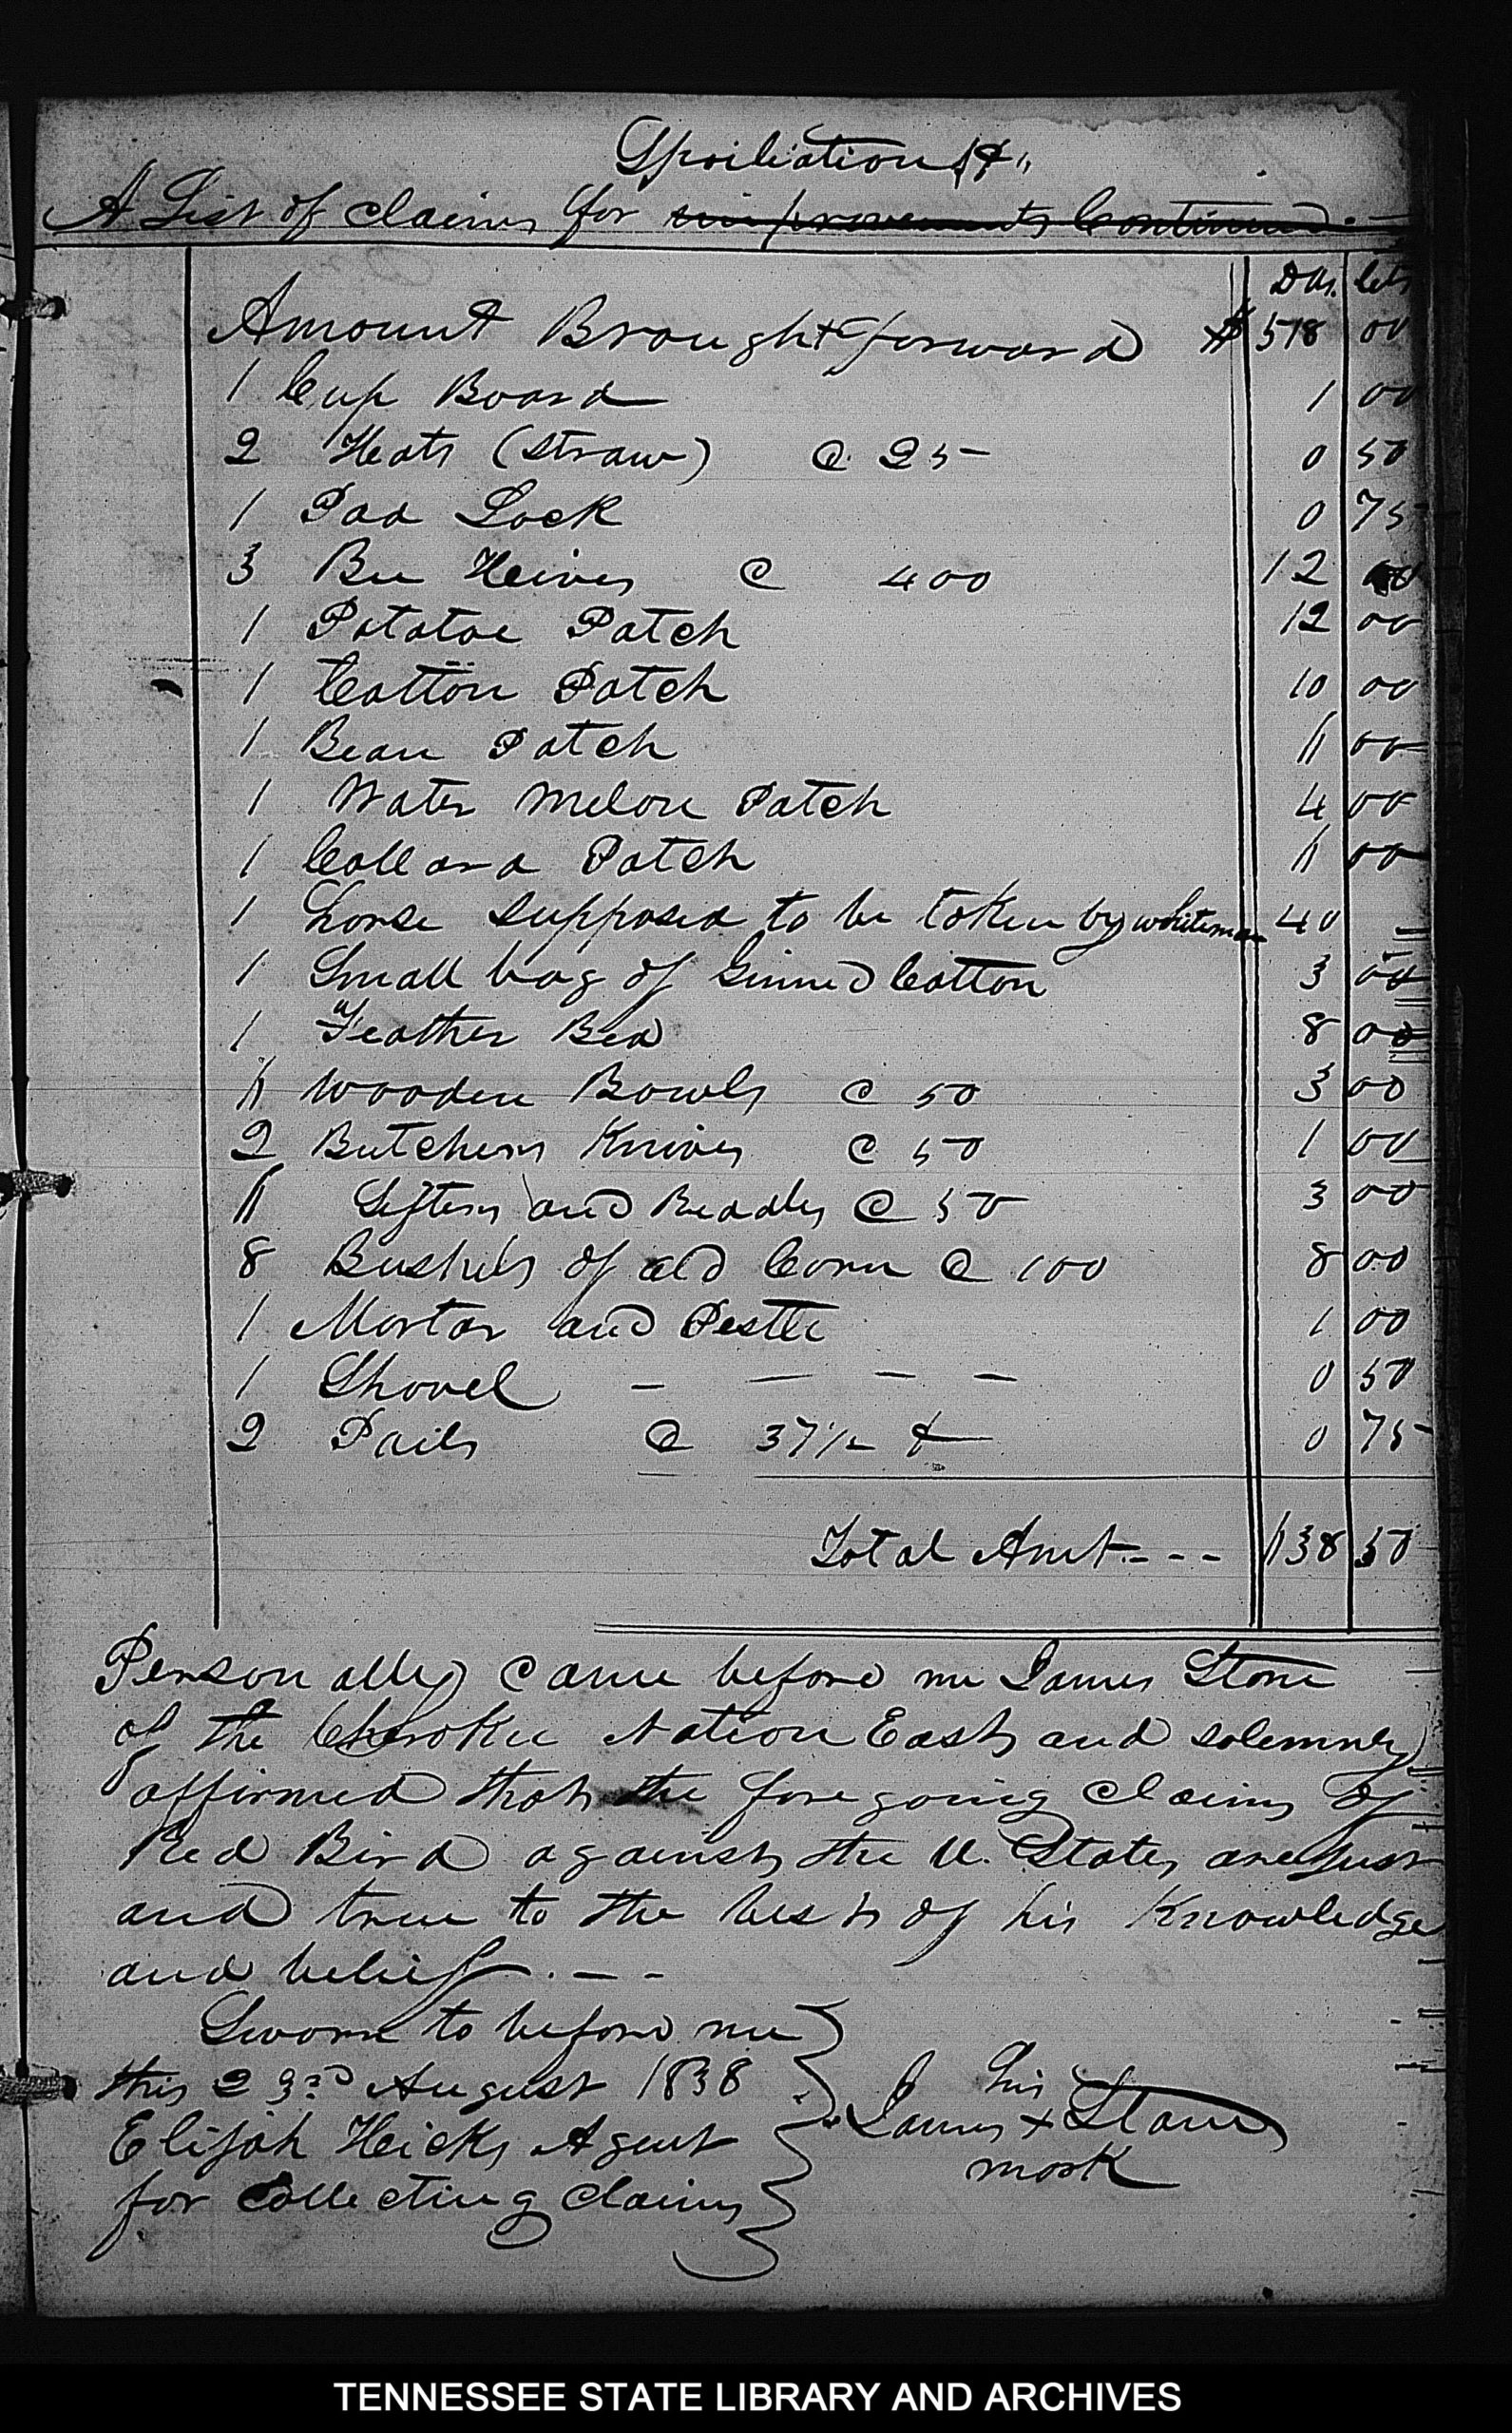 Spoliations &c
A List of Claims for improvements Continued.
Dlls. Cts
Amount Brought forward $ 518 00
1 Cup Board 1 00
2 Hats (straw) @ 25 0 50
1 Pad Lock 0 75
3 Bee Heives @ 400 12 00
1 Potatoe Patch 12 00
1 Cotton Patch 10 00
1 Bean Patch 6 00
1 Water Melon Patch 4 00
1 Collard Patch 6 00
1 horse supposed to be taken by whiteman 40 =
1 Small bag of Ginned Cotton 3 00
1 Feather Bed 8 00
6 Wooden Bowls @ 50 3 00
2 Butchers Knives @ 50 1 00
6 Sifters and Readles @ 50 3 00
8 Bushels of old Corn @ 100 8 00
1 Mortar and Pestle 1 00
1 Shovel - - - - 0 50
2 Pails @ 37 1/2 ¢ 0 75
Total Amt - - - 638 50
Personally Came before me James Stone
of the Cherokee Nation East and solemnly
affirmed that the foregoing Claims of
Red Bird against the U. States are just
and true to the best of his Knowledge
and belief. - -
Sworn to before me
this 23rd August 1838
Elijah Hicks Agent
for Collecting Claims
his
James x Stone
mark
TENNESSEE STATE LIBRARY AND ARCHIVES